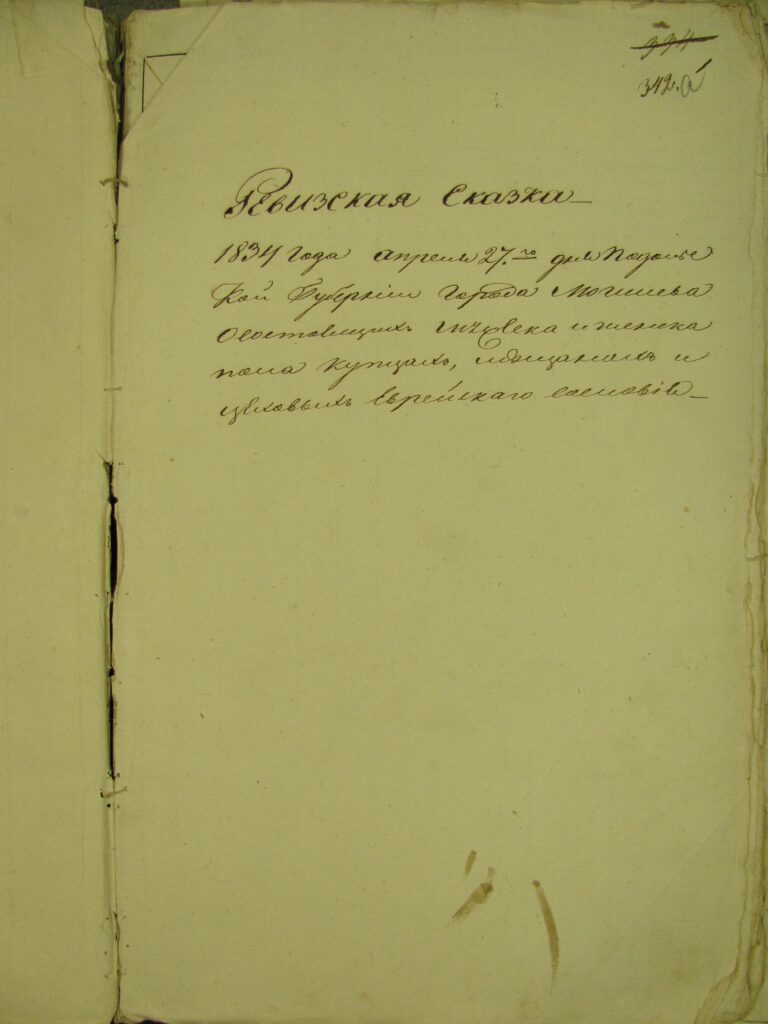 334
342.а
Ревизская Сказка
1834 Года апреля 27.го дня Подольс
кой Губернiи Города Могилева
О состоящихъ мужеска и женска
пола купцахъ, мѣщанахъ и
цѣховыхъ Еврейскаго сословiя